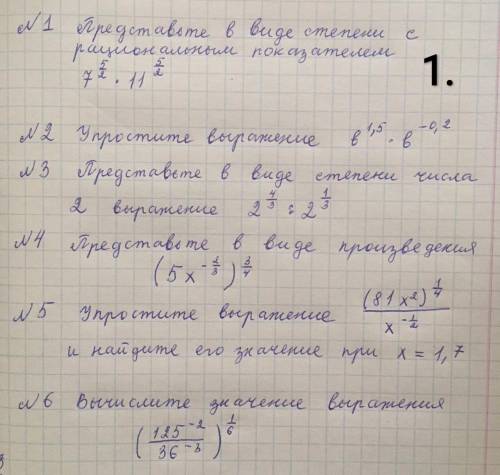 №1 Представьте в виде степени с
рациональным показателем
7^(5/2) · 11^(5/2)
1.
№2 Упростите выражение в^1,5 · в^-0,2
№3 Представьте в виде степени числа
2 выражение 2^(4/3) : 2^(1/3)
№4 Представьте в виде произведения
(5x^(-2/3))^(3/4)
№5 Упростите выражение (81x²)^(1/4) / x^(-1/2)
и найдите его значение при x = 1,7
№6 Вычислите значение выражения
(125^-2 / 36^-3)^(1/6)